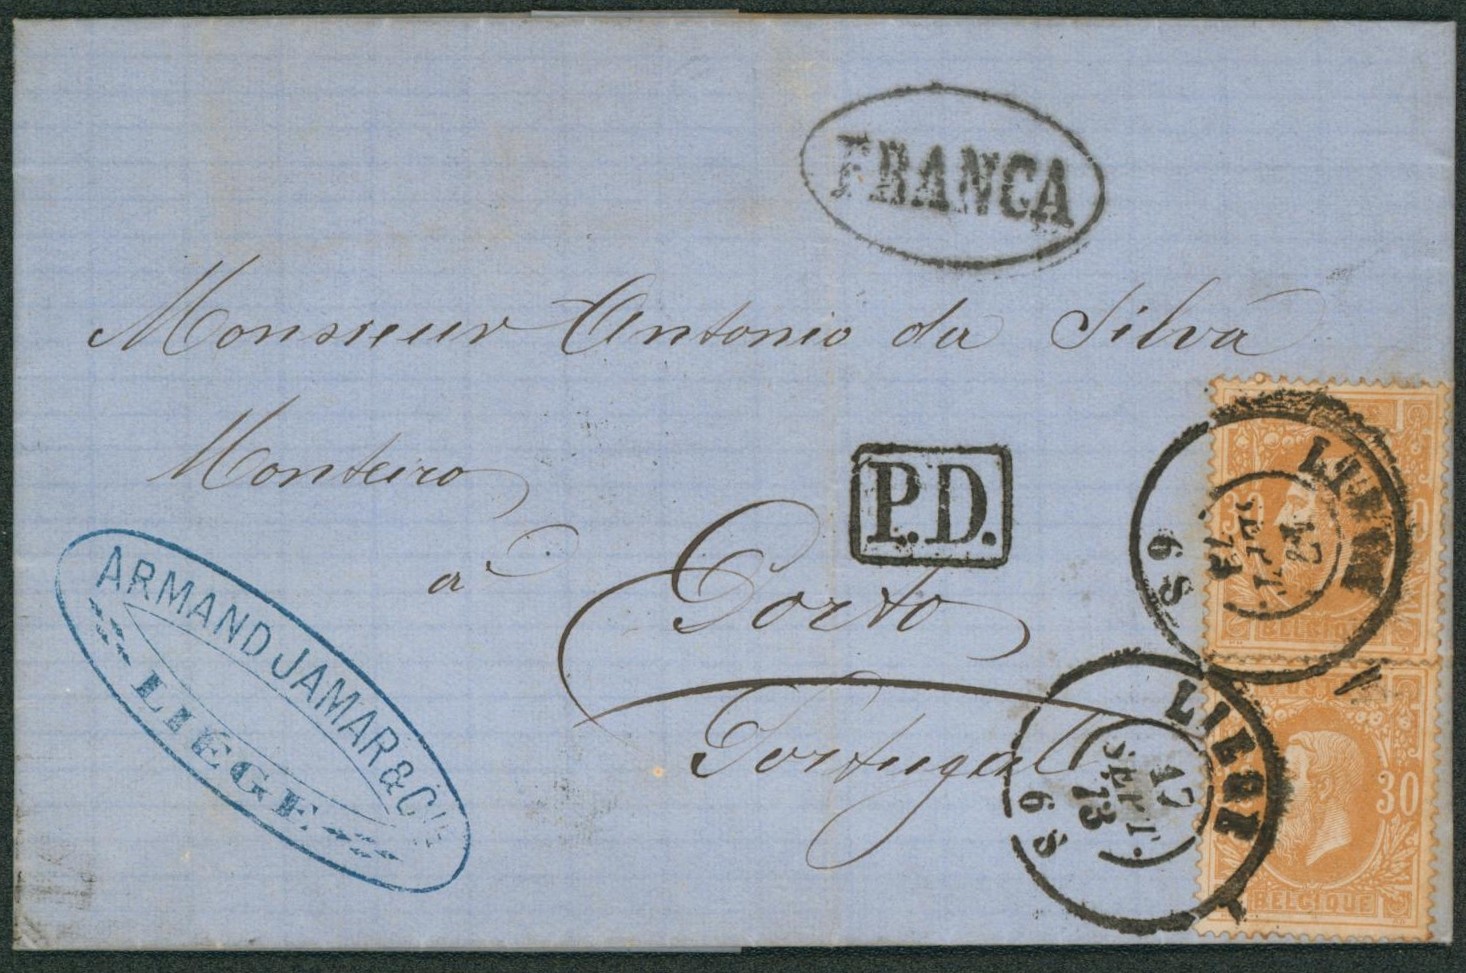 FRANCA
Monsieur Antonio da Silva
Monteiro
P.D.
à Porto
Portugal
ARMAND JAMAR & CIE
LIEGE
LIEGE
17
SEPT.
73
6 S
LIEGE
SEPT.
73
6 S
30
BELGIQUE
30
BELGIQUE